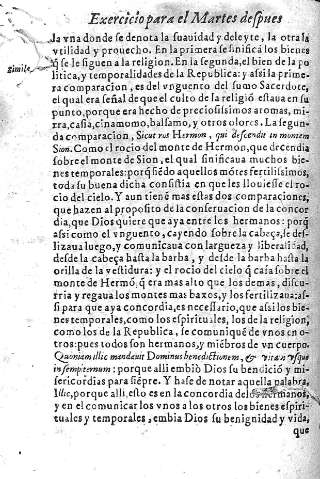 Exercicio para el Martes despues
la vna donde se denota la suauidad y deleyte, la otra la
vtilidad y prouecho. En la primera se sinificā los bienes
simile.
q̄ se le siguen a la religion. En la segunda, el bien de la po
litica, y temporalidades de la Republica: y assi la prime-
ra comparacion, es del vnguento del sumo Sacerdote,
el qual era señal de que el culto de la religiō estaua en su
punto, porque era hecho de preciosissimos aromas, mi-
rra, casia, cinamomo, balsamo, y otros olores. La segun-
da comparacion, Sicut ros Hermon, qui descendit in montem
Sion. Como el rocio del monte de Hermon, que decendia
sobre el monte de Sion, el qual sinificaua muchos bie-
nes temporales: porq̄ siēdo aquellos mōtes fertilissimos,
toda su buena dicha consistia en que les llouiesse el ro-
cio del cielo. Y aun tiene mas estas dos comparaciones,
que hazen al proposito de la conseruacion de la concor
dia, que Dios quiere que aya entre los hermanos: porq̄
assi como el vnguento, cayendo sobre la cabeça, se des-
lizaua luego, y comunicaua con largueza y liberalidad,
desde la cabeça hasta la barba, y desde la barba hasta la
orilla de la vestidura: y el rocio del cielo q̄ caía sobre el
monte de Hermō, q̄ era mas alto que los demas, discu-
rria y regaua los montes mas baxos, y los fertilizaua: as-
si para que aya concordia, es necessario, que assi los bie-
nes temporales, como los espirituales, los de la religion,
como los de la Republica, se comuniquē de vnos en o-
tros: pues todos son hermanos, y miēbros de vn cuerpo.
Quoniam illic mandauit Dominus benedictionem, & vitam vsque
in sempiternum: porque alli embiò Dios su bendiciō y mi-
sericordias para siēpre. Y hase de notar aquella palabra,
Illic, porque alli, esto es en la concordia de los hermanos,
y en el comunicar los vnos a los otros los bienes espiri-
tuales y temporales, embia Dios su benignidad y vida,
que